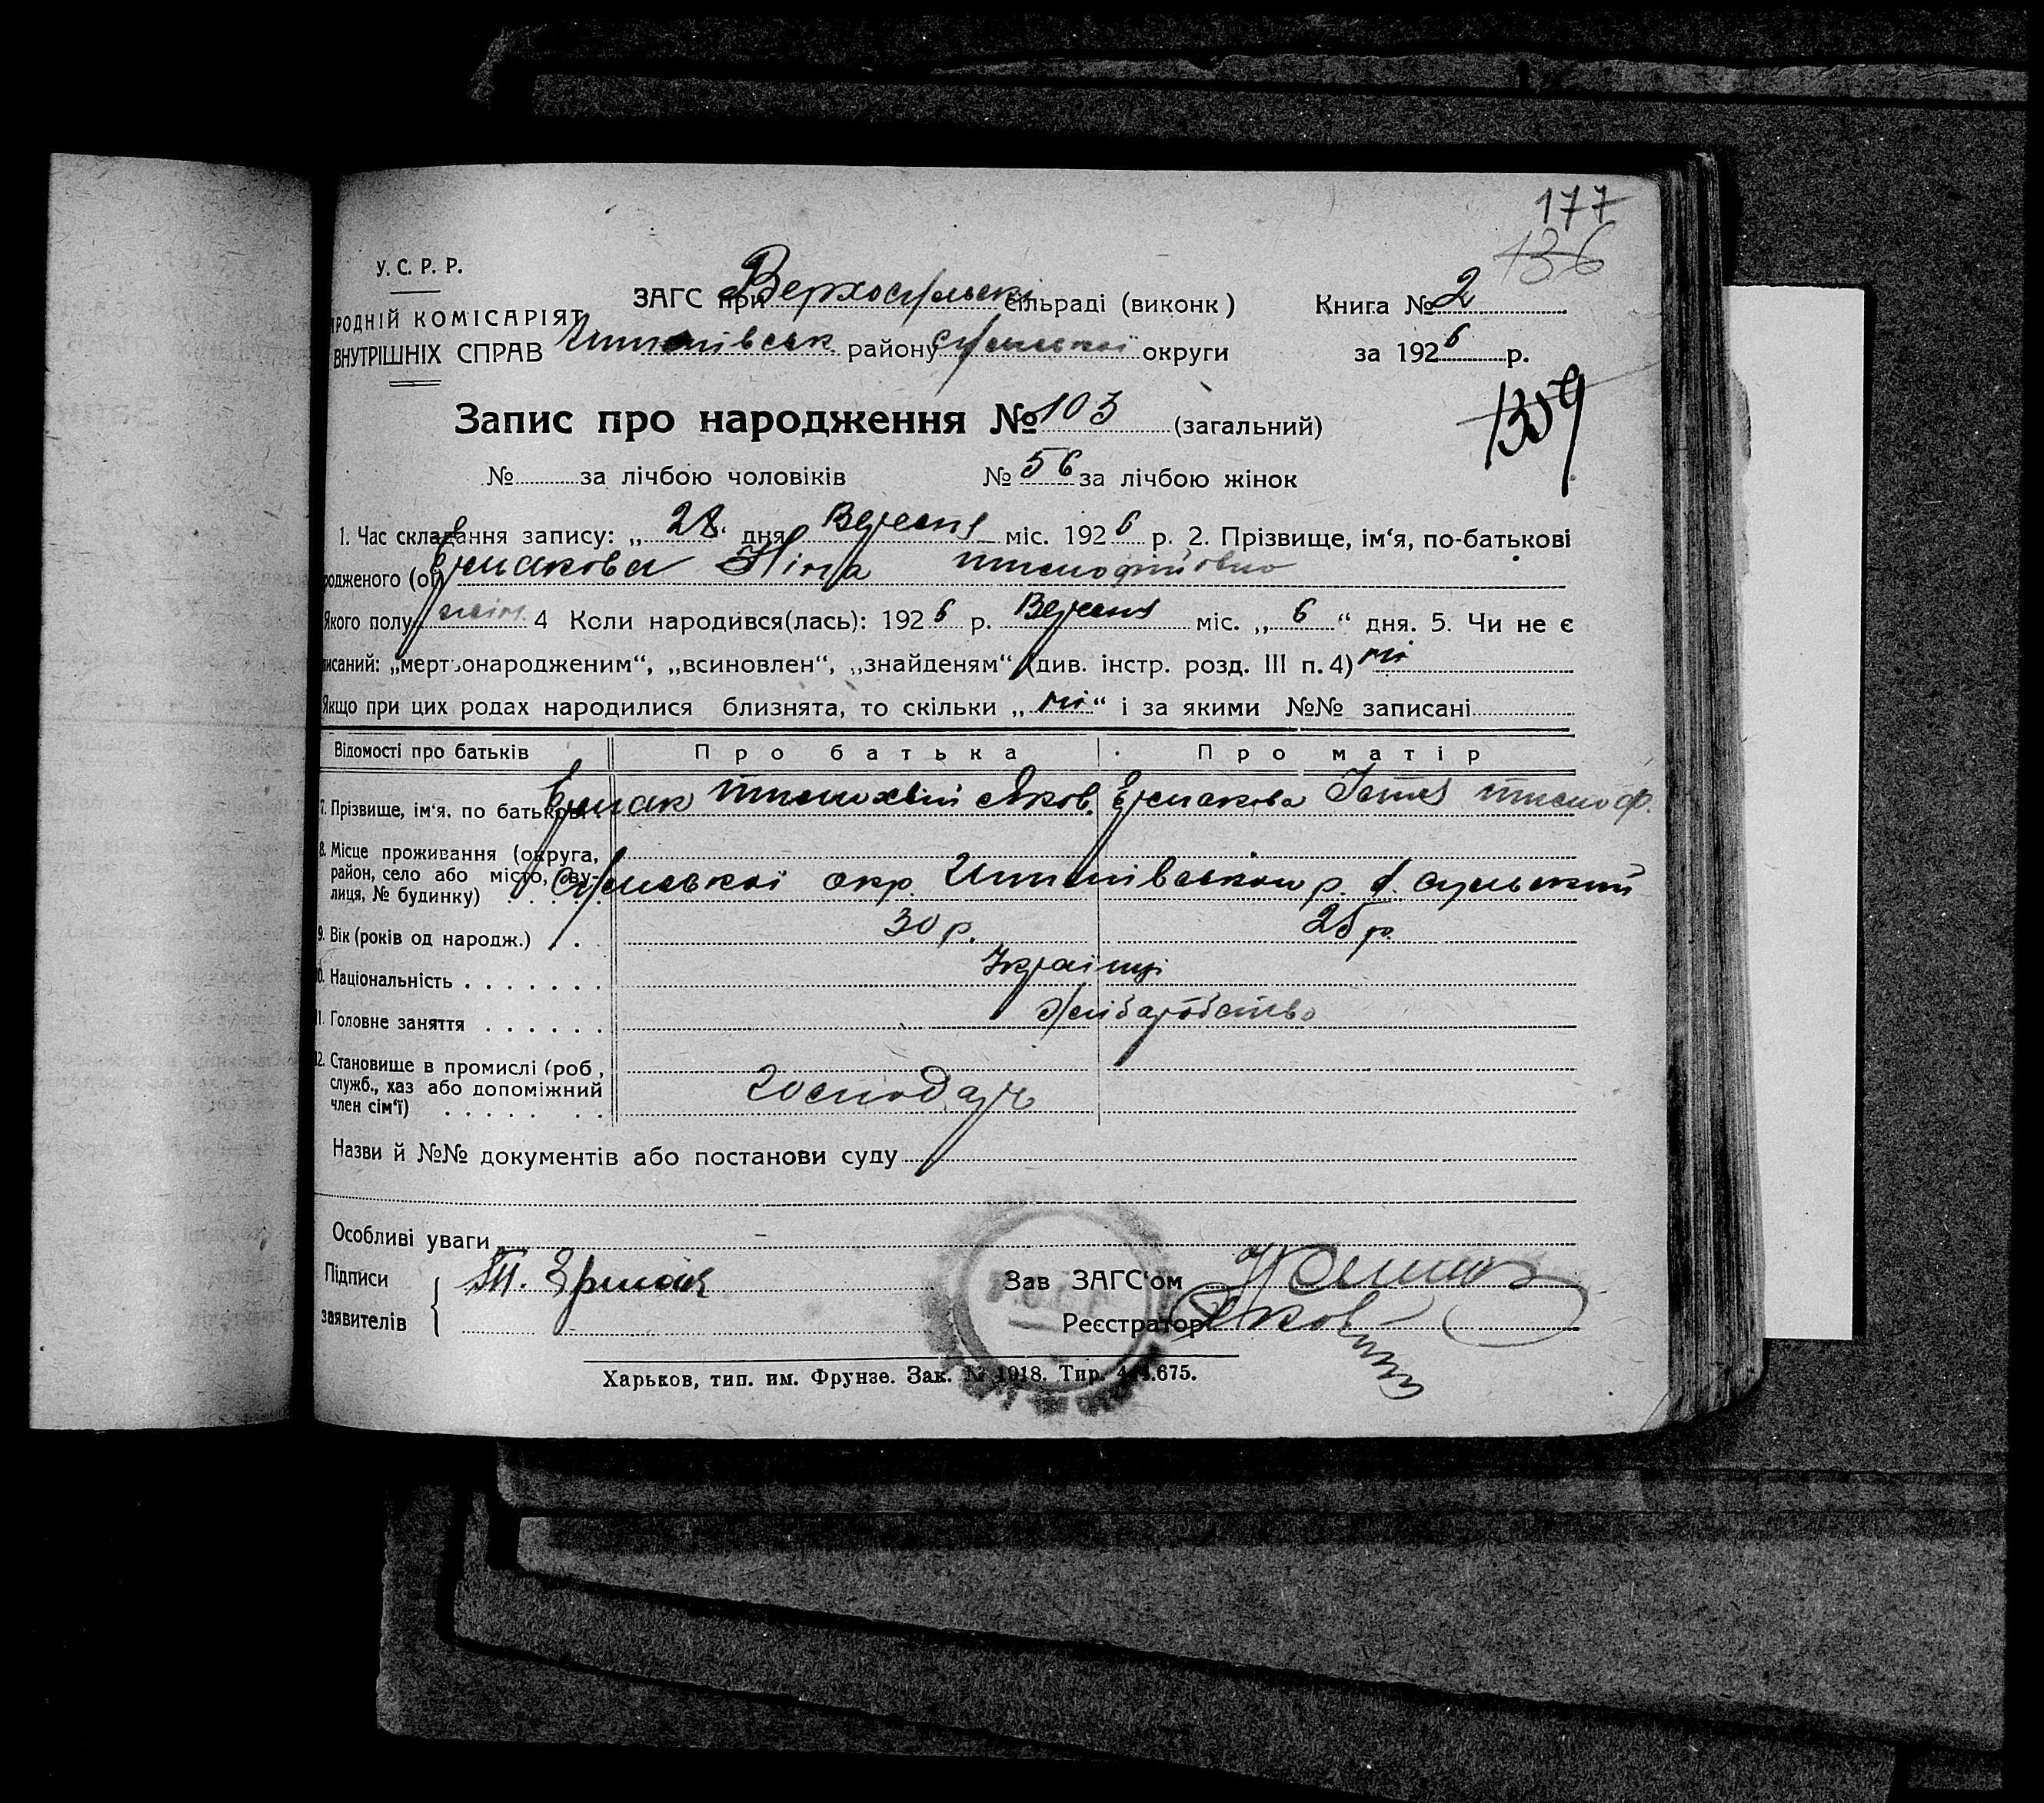 177
136
У. С. Р. Р.
ЗАГС при Верхосульскі сільраді (виконк) Книга № 2
РОДНІЙ КОМІСАРІЯТ
ВНУТРІШНІХ СПРАВ Штепівськ району Сумської округи за 1926 р.
1359
Запис про народження № 103 (загальний)
№ за лічбою чоловіків № 56 за лічбою жінок
1. Час складання запису: „28“ дня Вересня міс. 1926 р. 2. Прізвище, ім‘я, по-батькові
родженого (ої) Ермакова Ніна Тимофіївна
Якого полу жін. 4 Коли народився(лась): 1926 р. Вересня міс. „6“ дня. 5. Чи не є
писаний: „мертвонародженим“, „всиновлен“, „знайденям“ (див. інстр. розд. III п. 4) ні
Якщо при цих родах народилися близнята, то скільки „ні“ і за якими №№ записані
Відомості про батьків Про батька Про матір
7. Прізвище, ім‘я, по батькові Ермак Тимохвій Яков. Ермакова Тимоф.
8. Місце проживання (округа, район, село або місто, вулиця, № будинку) Сумської окр. Штепівськои р. Сульский
9. Вік (років од народж.) 30 р. 25 р.
10. Національність Українці
11. Головне заняття Хліборобство
12. Становище в промислі (роб, служб., хаз або допоміжний член сім‘ї) Господарь
Назви й №№ документів або постанови суду
Особливі уваги
Підписи Т. Ермак Зав ЗАГС‘ом
заявителів Реєстратор
Харьков, тип. им. Фрунзе. Зак. № 1918. Тир.